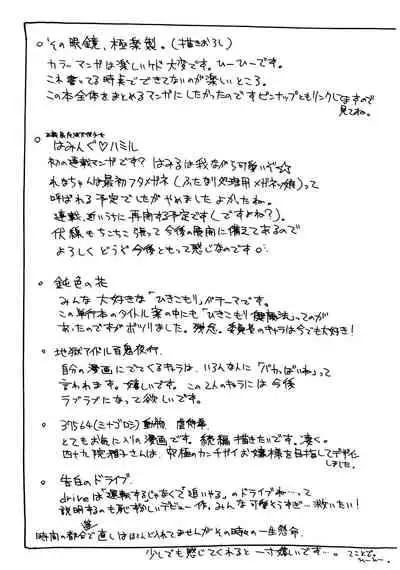 ○その眼鏡、極楽製。(描きおろし)
カラーマンガは楽しいケド大変です。ひーひーです。
これ書いてる時点でできてないのが楽しいところ。
この本全体をまとめるマンガにしたかったのですピンナップともリンクしてますので
見てね。
はみんぐ♡ハミル
初の連載マンガです?はみるは我ながら可愛いぞ☆
れなちゃんは最初フタメガネ(ふたなり処理用メガネっ娘)って
呼ばれる予定でしたがやめましたよかたね。
連載、近いうちに再開する予定です(ですよね?)。
伏線もちこちこ張って今後の展開に備えてあるので
よろしくどうぞ今後ともって感じなのです○。
・鈍色の花
みんな大好きな「ひきこもり」がテーマです。
この単行本のタイトル案の中にも「ひきこもり健康法」ってのが
あったのですがボツりました。残念。委員長のキャラは今でも大好き!
・地獄アイドル百鬼夜行.
自分の漫画にでてくるキャラは、いろんな人に「バカっぽいね」って
言われます。嬉しいです。この2人のキャラには今後
ラブラブになって欲しいです。
・37564(ミナゴロシ)動物
とてもお気に入りの漫画です。続編描きたいです。凄く。
四十九院雅子さんは、究極のカンチガイお嬢様を目指してデザイン
しました。
・告白のドライブ.
driveは「運転するじゃなくて「追いやる」のドライブね…って
説明するのも恥ずかしいデビュー作。みんな可哀そうすぎ…救いたい!
時間の都合で直しはほとんど入れてませんがその時々の一生懸命、
少しでも感じてくれると一寸嬉しいです…。てことで。